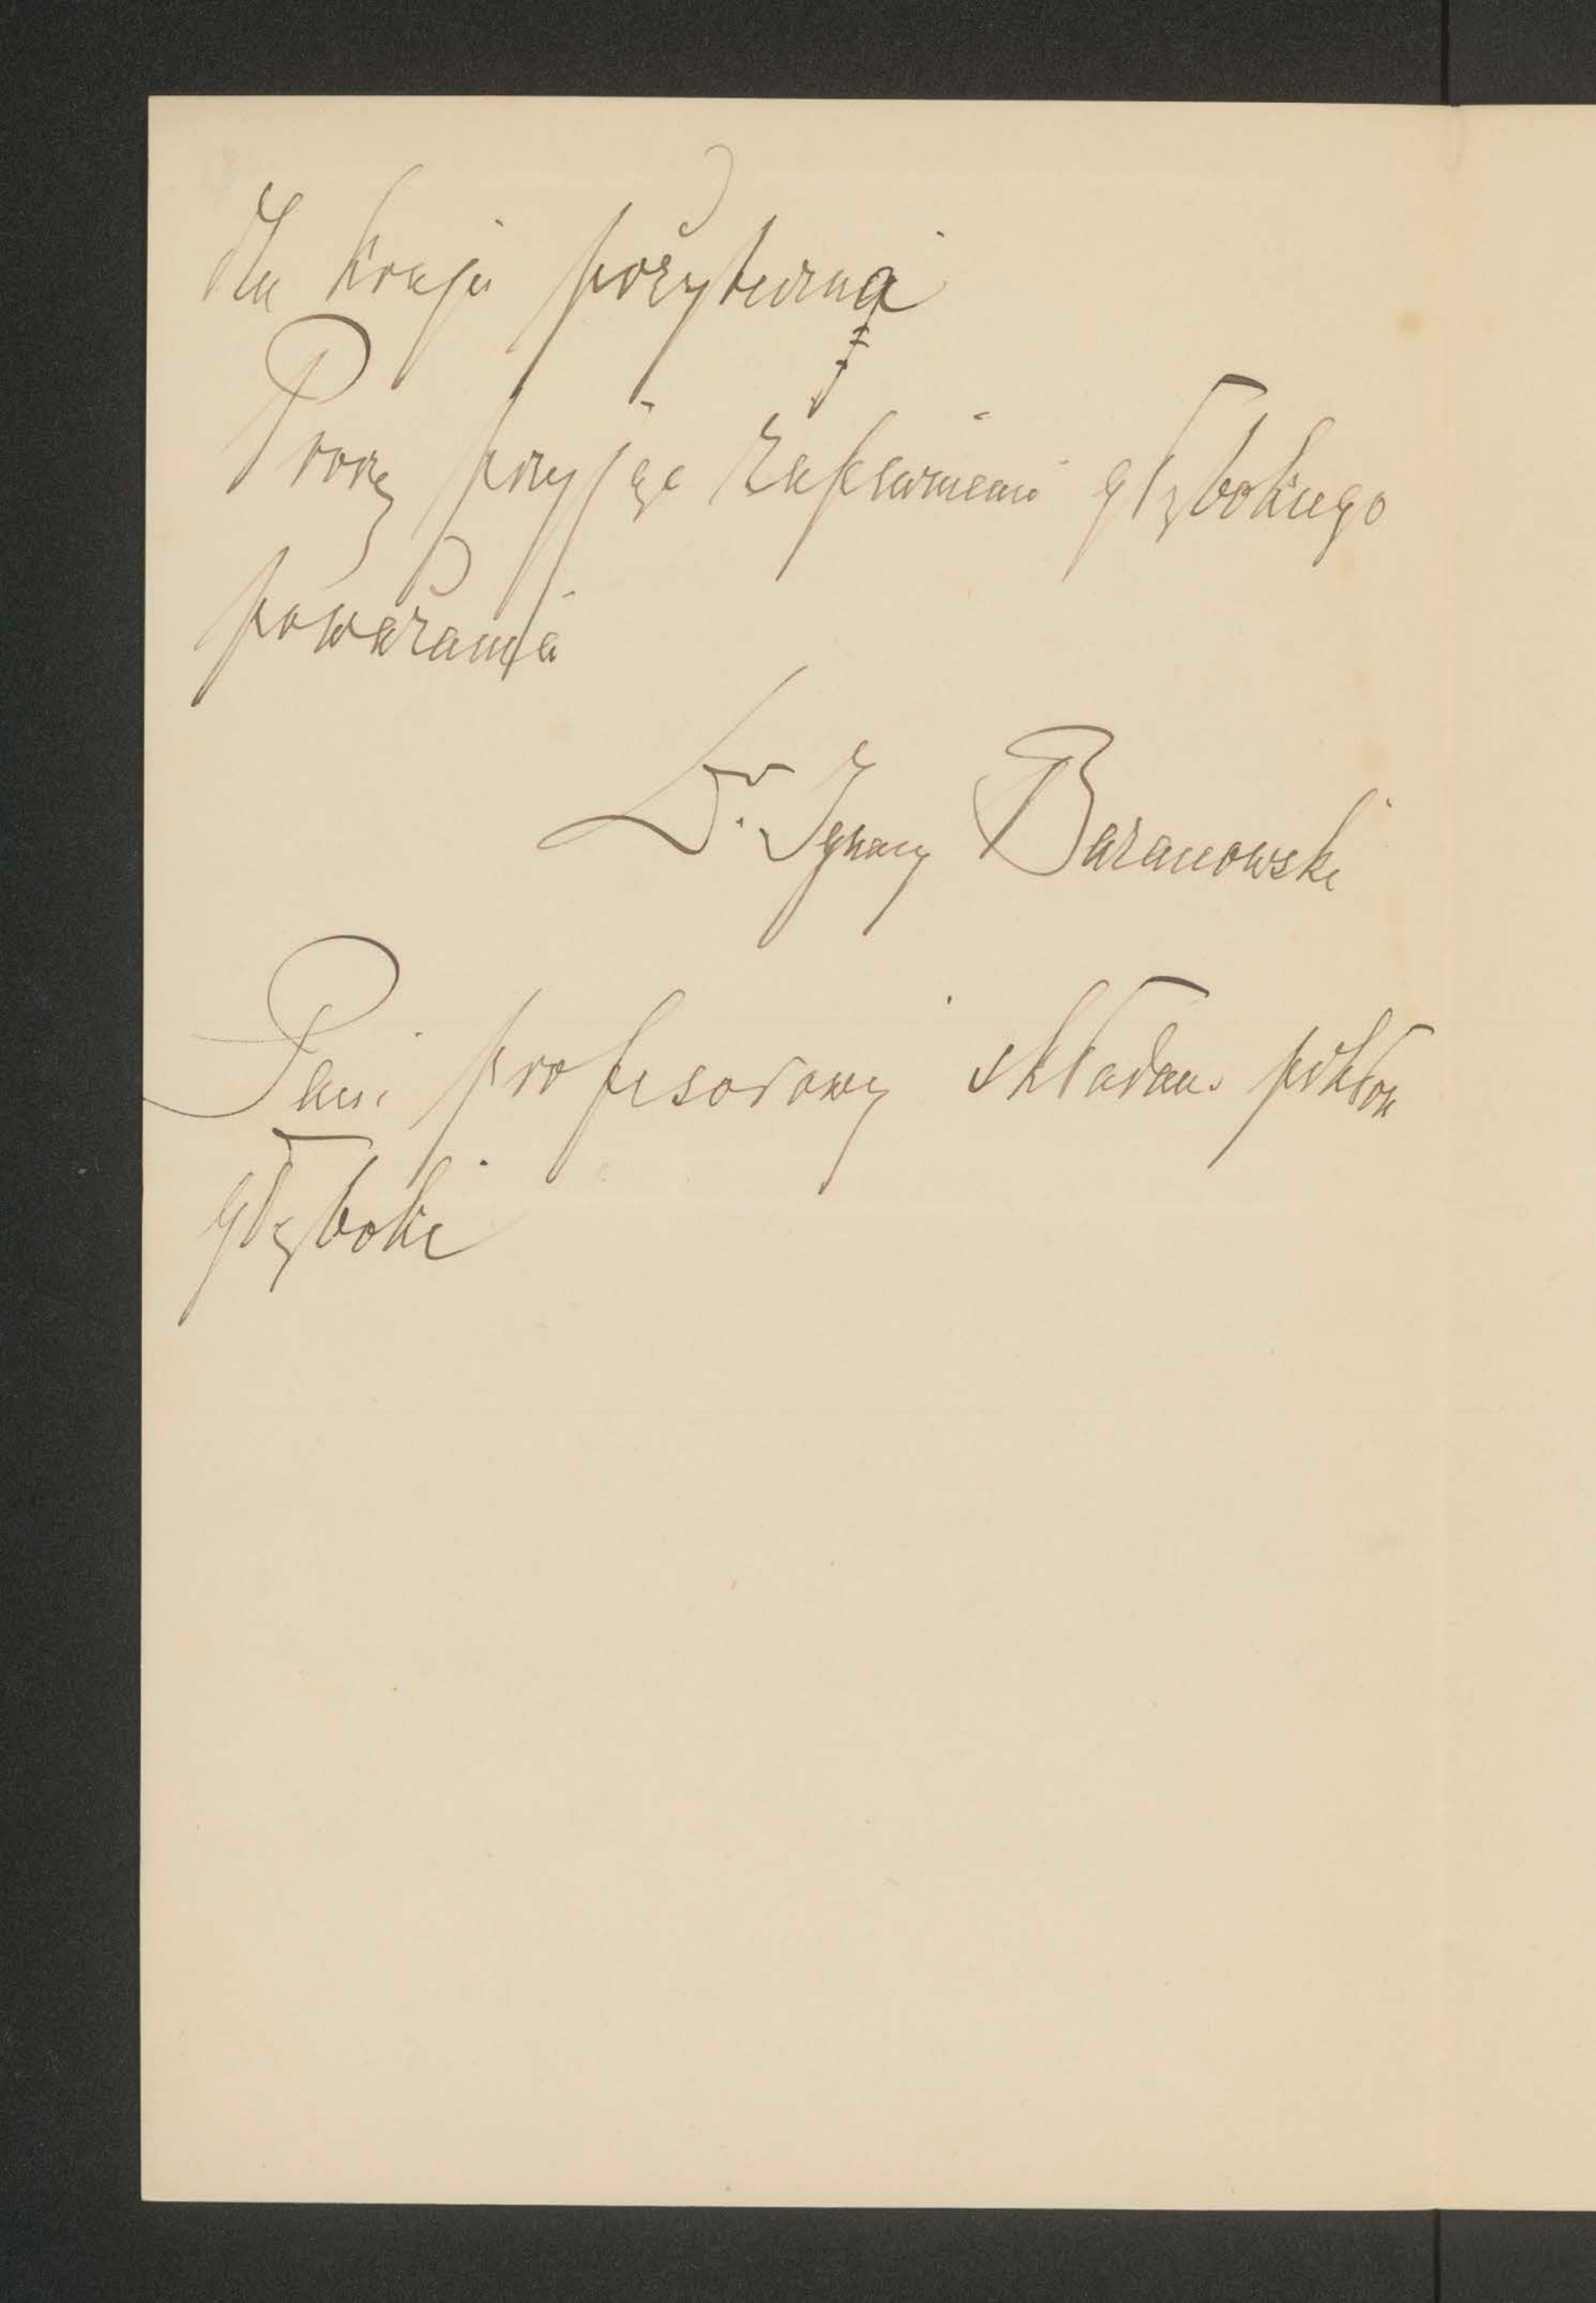 dla kraju pożyteczną
Proszę przyjąć zapewnienie głębokiego
poważania
Dr. Ignacy Baranowski
Pani profesorowej składam pokłon
głęboki